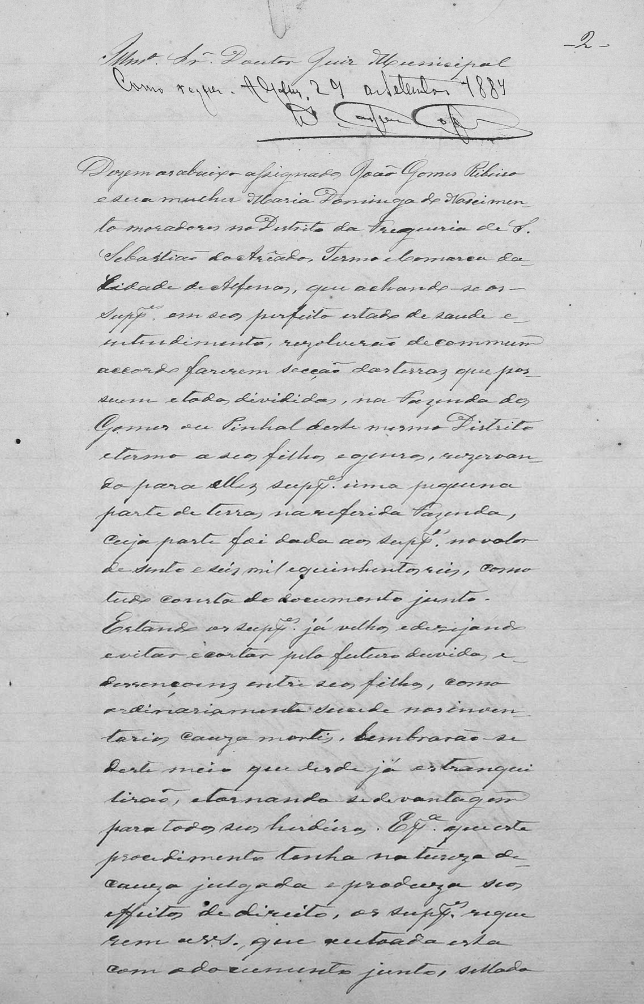 -2-
Illmº. Sr. Doutor Juiz Municipal
Como requer. Alfenas, 29 Setembro 1884
Dizem os abaixo assignados João Gomes Ribeiro
e sua mulher Maria Dominga do Nascimen-
to moradores no Distrito da Freguezia de S.
Sebastião do Areado, Termo e Comarca da
Cidade de Alfenas, que achando-se os
suppes. em seo perfeito estado de saude e
intendimento, rezolverão de commum
accordo fazerem secção das terras que pos-
suem e todas divididas, na Fazenda dos
Gomes ou Pinhal deste mesmo Distrito
e termo a seos filhos e genros, rezervan-
do para elles suppes. uma piquena
parte de terras na referida Fazenda,
cuja parte foi dada aos suppes. no valor
de sento e seis mil e quinhentos reis, como
tudo consta do documento junto.
Estando os suppes. já velhos e dezijando
evitar e cortar pelo futuro duvidas e
desencoins entre seos filhos, como
ordinariamente sucede nos inven-
tarios cauza mortis, lembrarão-se
deste meio que desde já os tranqui
lizão, e tornando-se de vantagem
para todos seos herdeiros. E pª. que este
procedimento tenha natureza de
cauza julgada e produza seos
effeitos de direito, os suppes. reque
rem a V.S., que autoada esta
com o documento junto, sellado